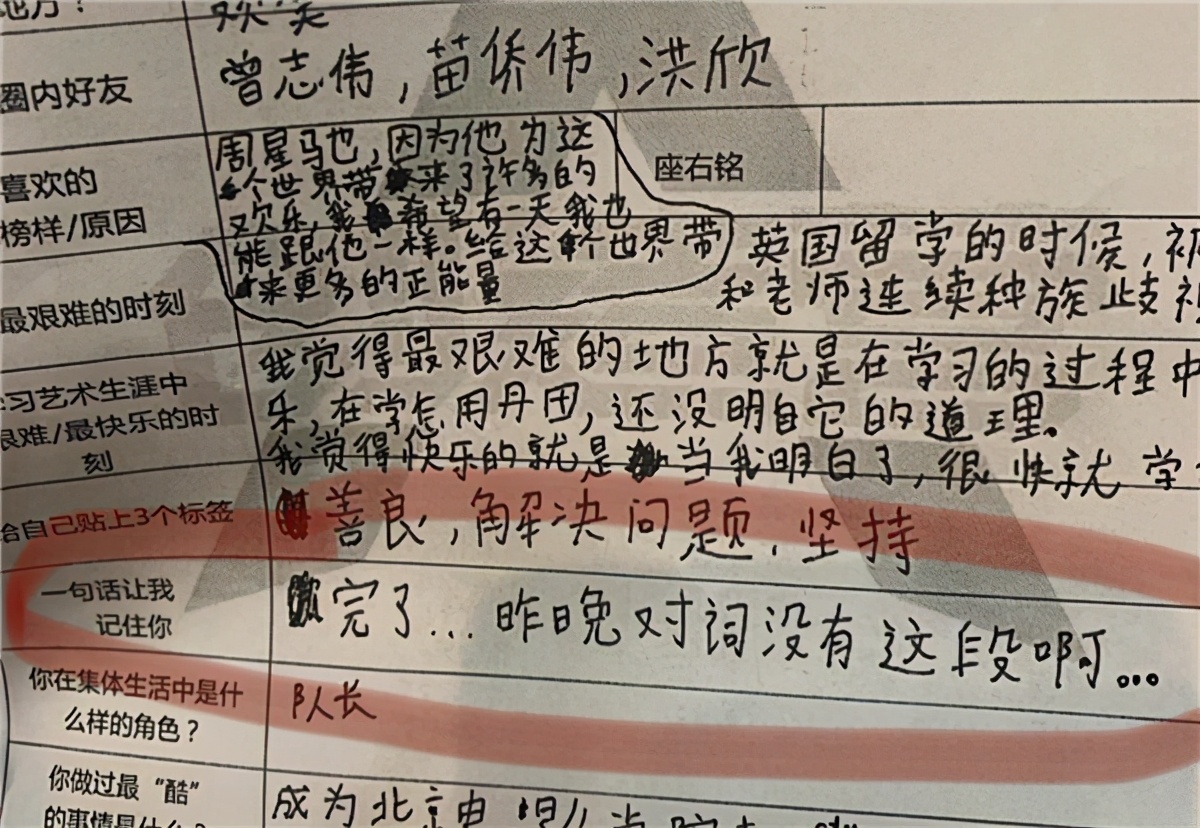 地方？
欢笑
圈内好友
曾志伟，苗侨伟，洪欣
喜欢的
榜样/原因
周星马也，因为他为这
个世界带来了许多的
欢乐，我希望有一天我也
能跟他一样。给这个世界带
来更多的正能量
座右铭
最艰难的时刻
英国留学的时候，被
和老师连续种族歧视
学习艺术生涯中
艰难/最快乐的时
刻
我觉得最艰难的地方就是在学习的过程中
乐，在学怎用丹田，还没明白它的道理。
我觉得快乐的就是当我明白了，很快就学
给自己贴上3个标签
善良，解决问题，坚持
一句话让我
记住你
完了...昨晚对词没有这段啊...
你在集体生活中是什
么样的角色？
队长
你做过最“酷”
的事情是什么？
成为北京电